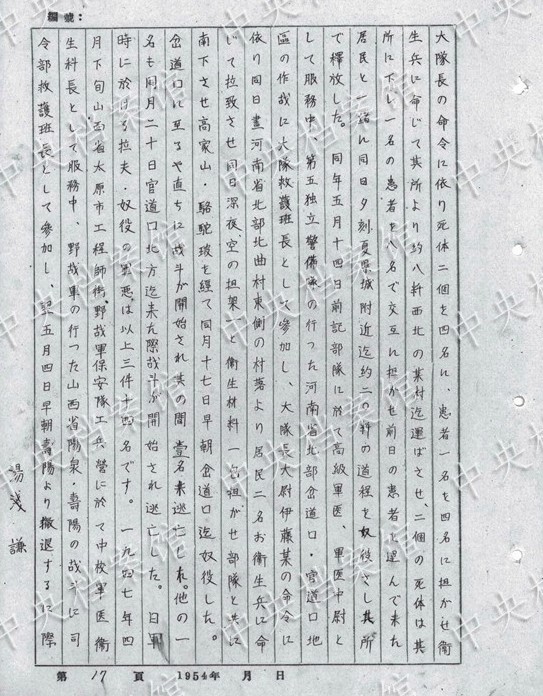 編號:
大隊長の命令に依り死体二個を四名に、患者一名を四名に担かせ衛
生兵に命じて其所より約八粁西北の某村迄運ばさせ、二個の死体は其
所に下し一名の患者を八名で交互に担がせ前日の患者を運んで来た
居民と一諸に同日夕刻夏県城附近迄約二〇粁の道程を奴役さし其所
で釋放した。同年五月十四日前記部隊に於て高級軍医、軍医中尉と
して服務中、第五独立警備隊の行った河南省北部岔道口・官道口地
區の作战に大隊救護班長として参加し、大隊長大尉伊藤某の命令に
依り同日昼河南省北部北曲村東側の村落より居民二名お衛生兵に命
じて拉致させ同日深夜、空の担架一と衛生材料一を担がせ部隊と共に
南下させ高家山・駱駝坡を経て同月十七日早朝岔道口迄奴役した。
岔道口に至るや直ちに战斗が開始され其の間壹名未逃亡しれ。他の一
名も同月二十日官道口北方迄来た際战斗が開始され逃亡した。日軍
時に於ける拉夫・奴役の罪悪は以上三件十四名です。一九四七年四
月下旬山西省太原市工程師街、野战軍保安隊工兵営に於て中校軍医衛
生科長として服務中、野战軍の行った山西省陽泉・壽陽の战斗に司
令部救護班長として参加し、五月四日早朝壽陽より撤退するに際
湯浅 謙
第 17 頁 1954年 月 日
中央档案馆